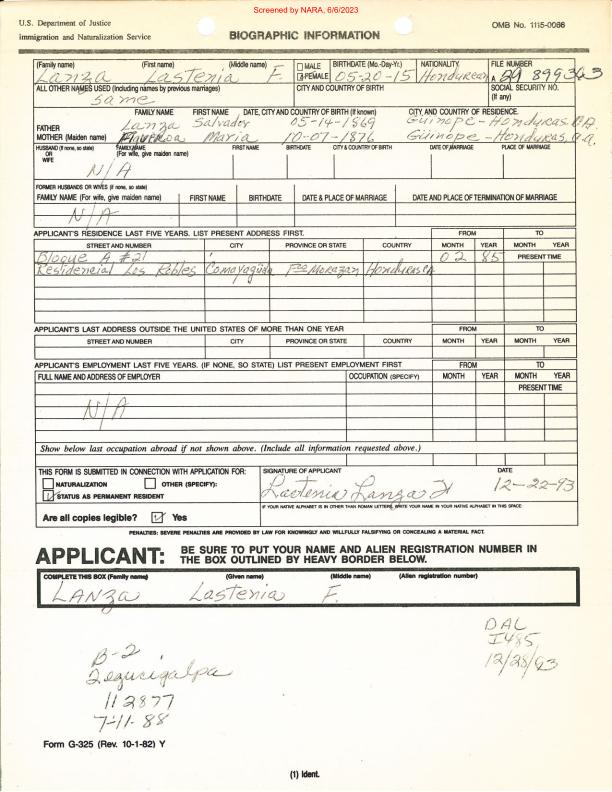 Screened by NARA, 6/6/2023
U.S. Department of Justice
Immigration and Naturalization Service
BIOGRAPHIC INFORMATION
OMB No. 1115-0066
(Family name) (First name) (Middle name) MALE BIRTHDATE (Mo.-Day-Yr.) NATIONALITY FILE NUMBER
Lanza Lastenia F. FEMALE 05-20-15 Honduran A 29 899 363
ALL OTHER NAMES USED (Including names by previous marriages) CITY AND COUNTRY OF BIRTH SOCIAL SECURITY NO. (If any)
same
FAMILY NAME FIRST NAME DATE, CITY AND COUNTRY OF BIRTH (If known) CITY AND COUNTRY OF RESIDENCE.
FATHER Lanza Salvador 05-14-1869 Guinope - Honduras C.A
MOTHER (Maiden name) Figueroa Maria 10-07-1876 Guinope - Honduras C.A.
HUSBAND (If none, so state) OR WIFE FAMILY NAME (For wife, give maiden name) FIRST NAME BIRTHDATE CITY & COUNTRY OF BIRTH DATE OF MARRIAGE PLACE OF MARRIAGE
N/A
FORMER HUSBANDS OR WIVES (if none, so state)
FAMILY NAME (For wife, give maiden name) FIRST NAME BIRTHDATE DATE & PLACE OF MARRIAGE DATE AND PLACE OF TERMINATION OF MARRIAGE
N/A
APPLICANT'S RESIDENCE LAST FIVE YEARS. LIST PRESENT ADDRESS FIRST. FROM TO
STREET AND NUMBER CITY PROVINCE OR STATE COUNTRY MONTH YEAR MONTH YEAR
Bloque A #21 02 85 PRESENT TIME
Residencial Los Robles Comayagüela Fco Morazan Honduras C.A.
APPLICANT'S LAST ADDRESS OUTSIDE THE UNITED STATES OF MORE THAN ONE YEAR FROM TO
STREET AND NUMBER CITY PROVINCE OR STATE COUNTRY MONTH YEAR MONTH YEAR
APPLICANT'S EMPLOYMENT LAST FIVE YEARS. (IF NONE, SO STATE) LIST PRESENT EMPLOYMENT FIRST FROM TO
FULL NAME AND ADDRESS OF EMPLOYER OCCUPATION (SPECIFY) MONTH YEAR MONTH YEAR
PRESENT TIME
N/A
Show below last occupation abroad if not shown above. (Include all information requested above.)
THIS FORM IS SUBMITTED IN CONNECTION WITH APPLICATION FOR: SIGNATURE OF APPLICANT DATE
NATURALIZATION OTHER (SPECIFY):
STATUS AS PERMANENT RESIDENT Lastenia Lanza F 12-22-93
IF YOUR NATIVE ALPHABET IS IN OTHER THAN ROMAN LETTERS, WRITE YOUR NAME IN YOUR NATIVE ALPHABET IN THIS SPACE:
Are all copies legible? Yes
PENALTIES: SEVERE PENALTIES ARE PROVIDED BY LAW FOR KNOWINGLY AND WILLFULLY FALSIFYING OR CONCEALING A MATERIAL FACT.
APPLICANT: BE SURE TO PUT YOUR NAME AND ALIEN REGISTRATION NUMBER IN
THE BOX OUTLINED BY HEAVY BORDER BELOW.
COMPLETE THIS BOX (Family name) (Given name) (Middle name) (Alien registration number)
LANZA Lastenia F.
DAL
I485
12/28/93
B-2
Tegucigalpa
112877
7-11-88
Form G-325 (Rev. 10-1-82) Y
(1) Ident.